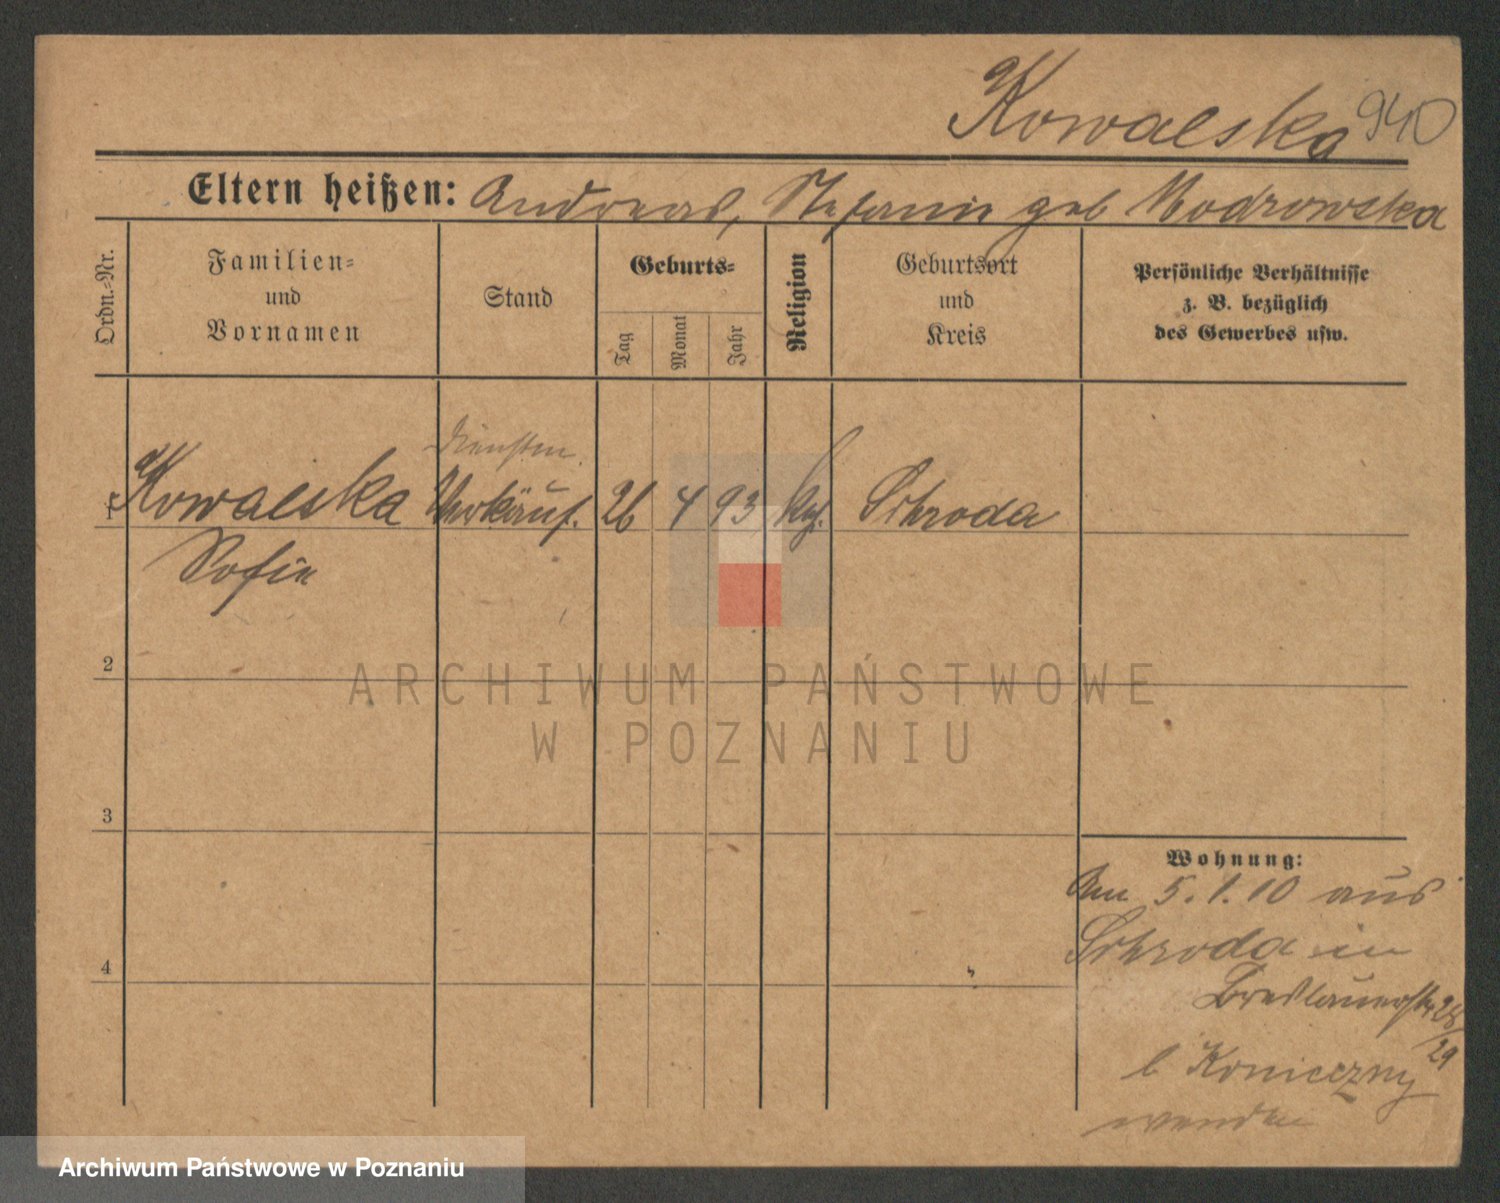 Kowalska 940
Eltern heißen: Andreas, Stefanie geb Modrowska
Ordn.-Nr.
Familien-
und
Vornamen
Stand
Geburts-
Tag
Monat
Jahr
Religion
Geburtsort
und
Kreis
Persönliche Verhältnisse
z. B. bezüglich
des Gewerbes usw.
Dienstm.
1 Kowalska Verkäuf. 26 4 93 Schroda
Sofie
2
3
4
Wohnung:
Am 5.1.10 aus
Schroda in
Breslauerstr 28/29
b Konieczny
wenden
ARCHIWUM PAŃSTWOWE
W POZNANIU
Archiwum Państwowe w Poznaniu